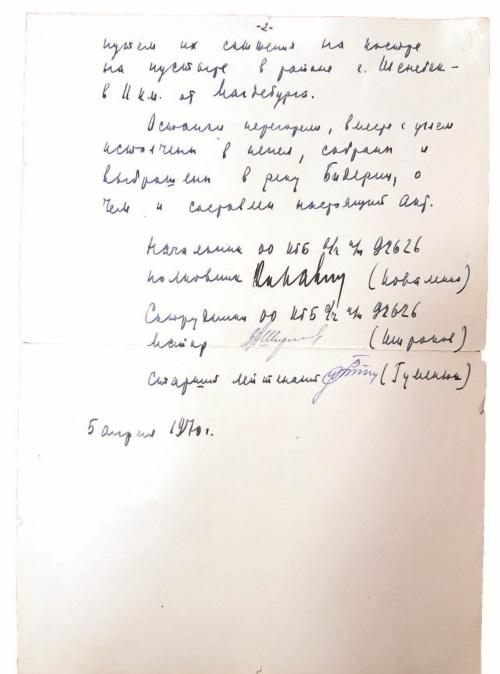 -2-
путем их сожжения на костре
на пустыре в районе г. Шенебек –
в 11 км. от Магдебурга.
Останки перегорели, вместе с углем
истолчены в пепел, собраны и
выброшены в реку Бидериц, о
чем и составлен настоящий акт.
Начальник ОО КГБ в/ч п/п 92626
полковник (Коваленко)
Сотрудники ОО КГБ в/ч п/п 92626
майор (Широков)
старший лейтенант (Гуменюк)
5 апреля 1970 г.